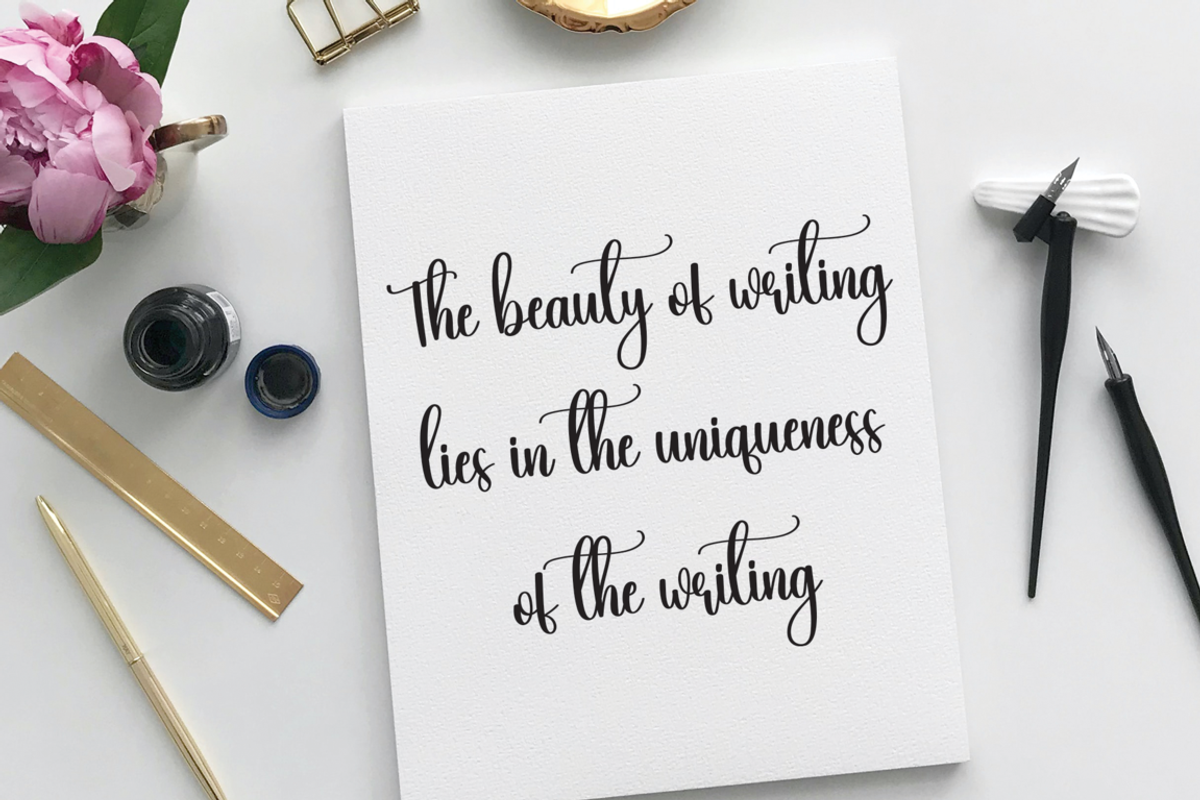 The beauty of writing
lies in the uniqueness
of the writing